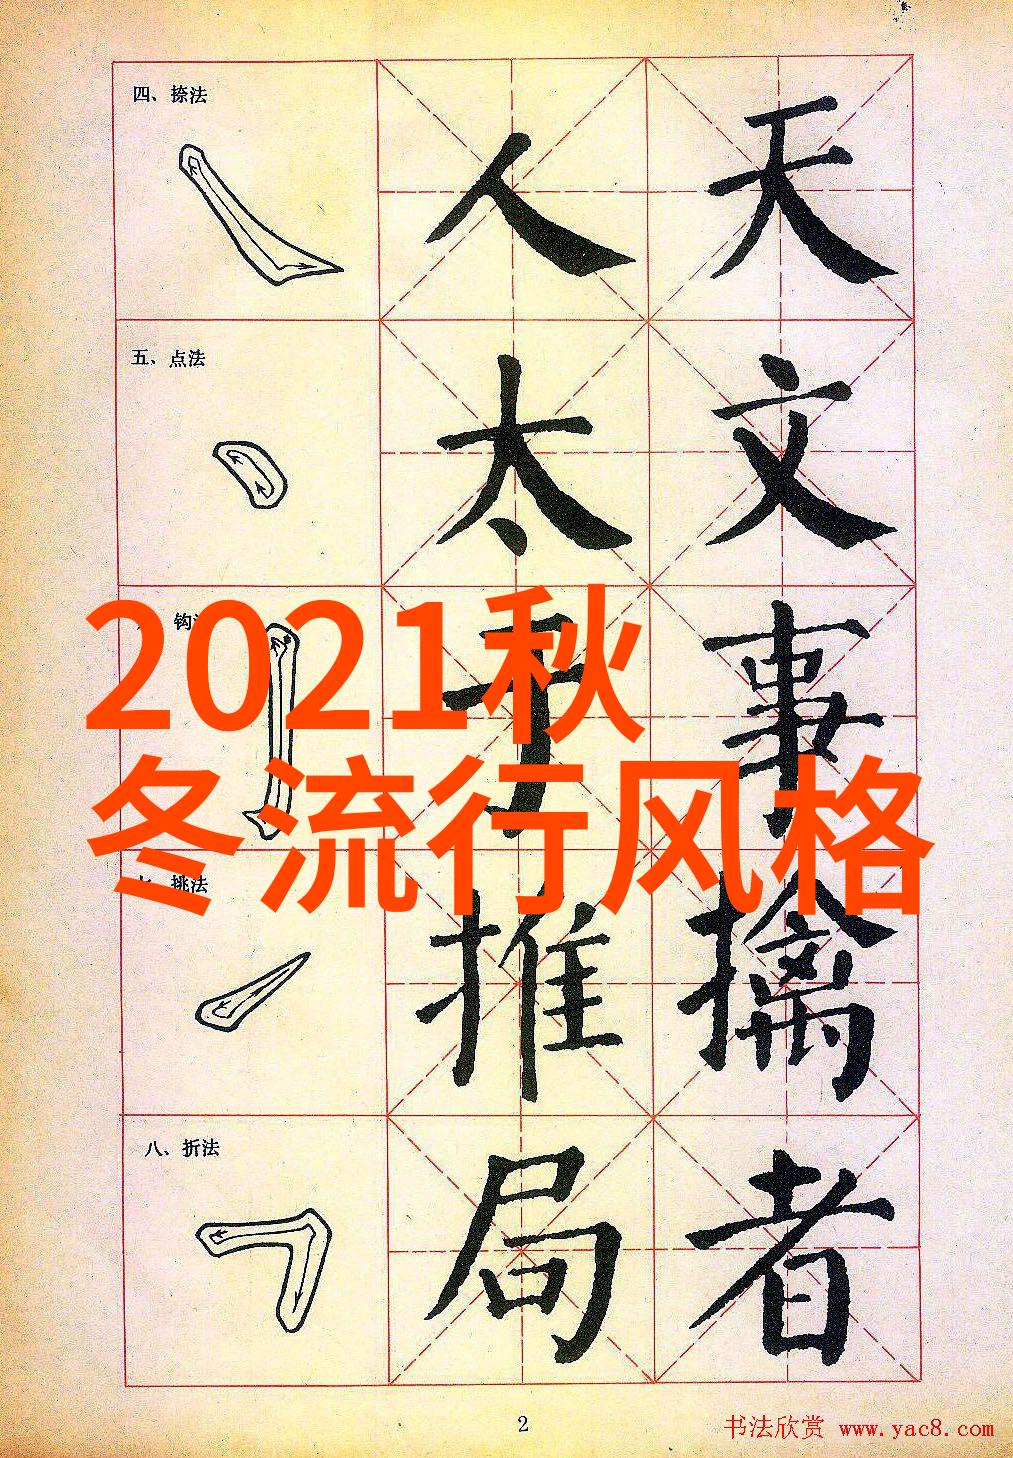 四、捺法
人 天
五、点法
太 文
钩
2021秋
于 事
冬流行风格
挑法
推 擒
八、折法
局 者
2
书法欣赏 www.yac8.com